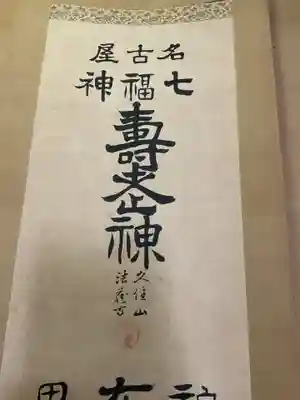 名古屋
七福神
壽老神
久住山